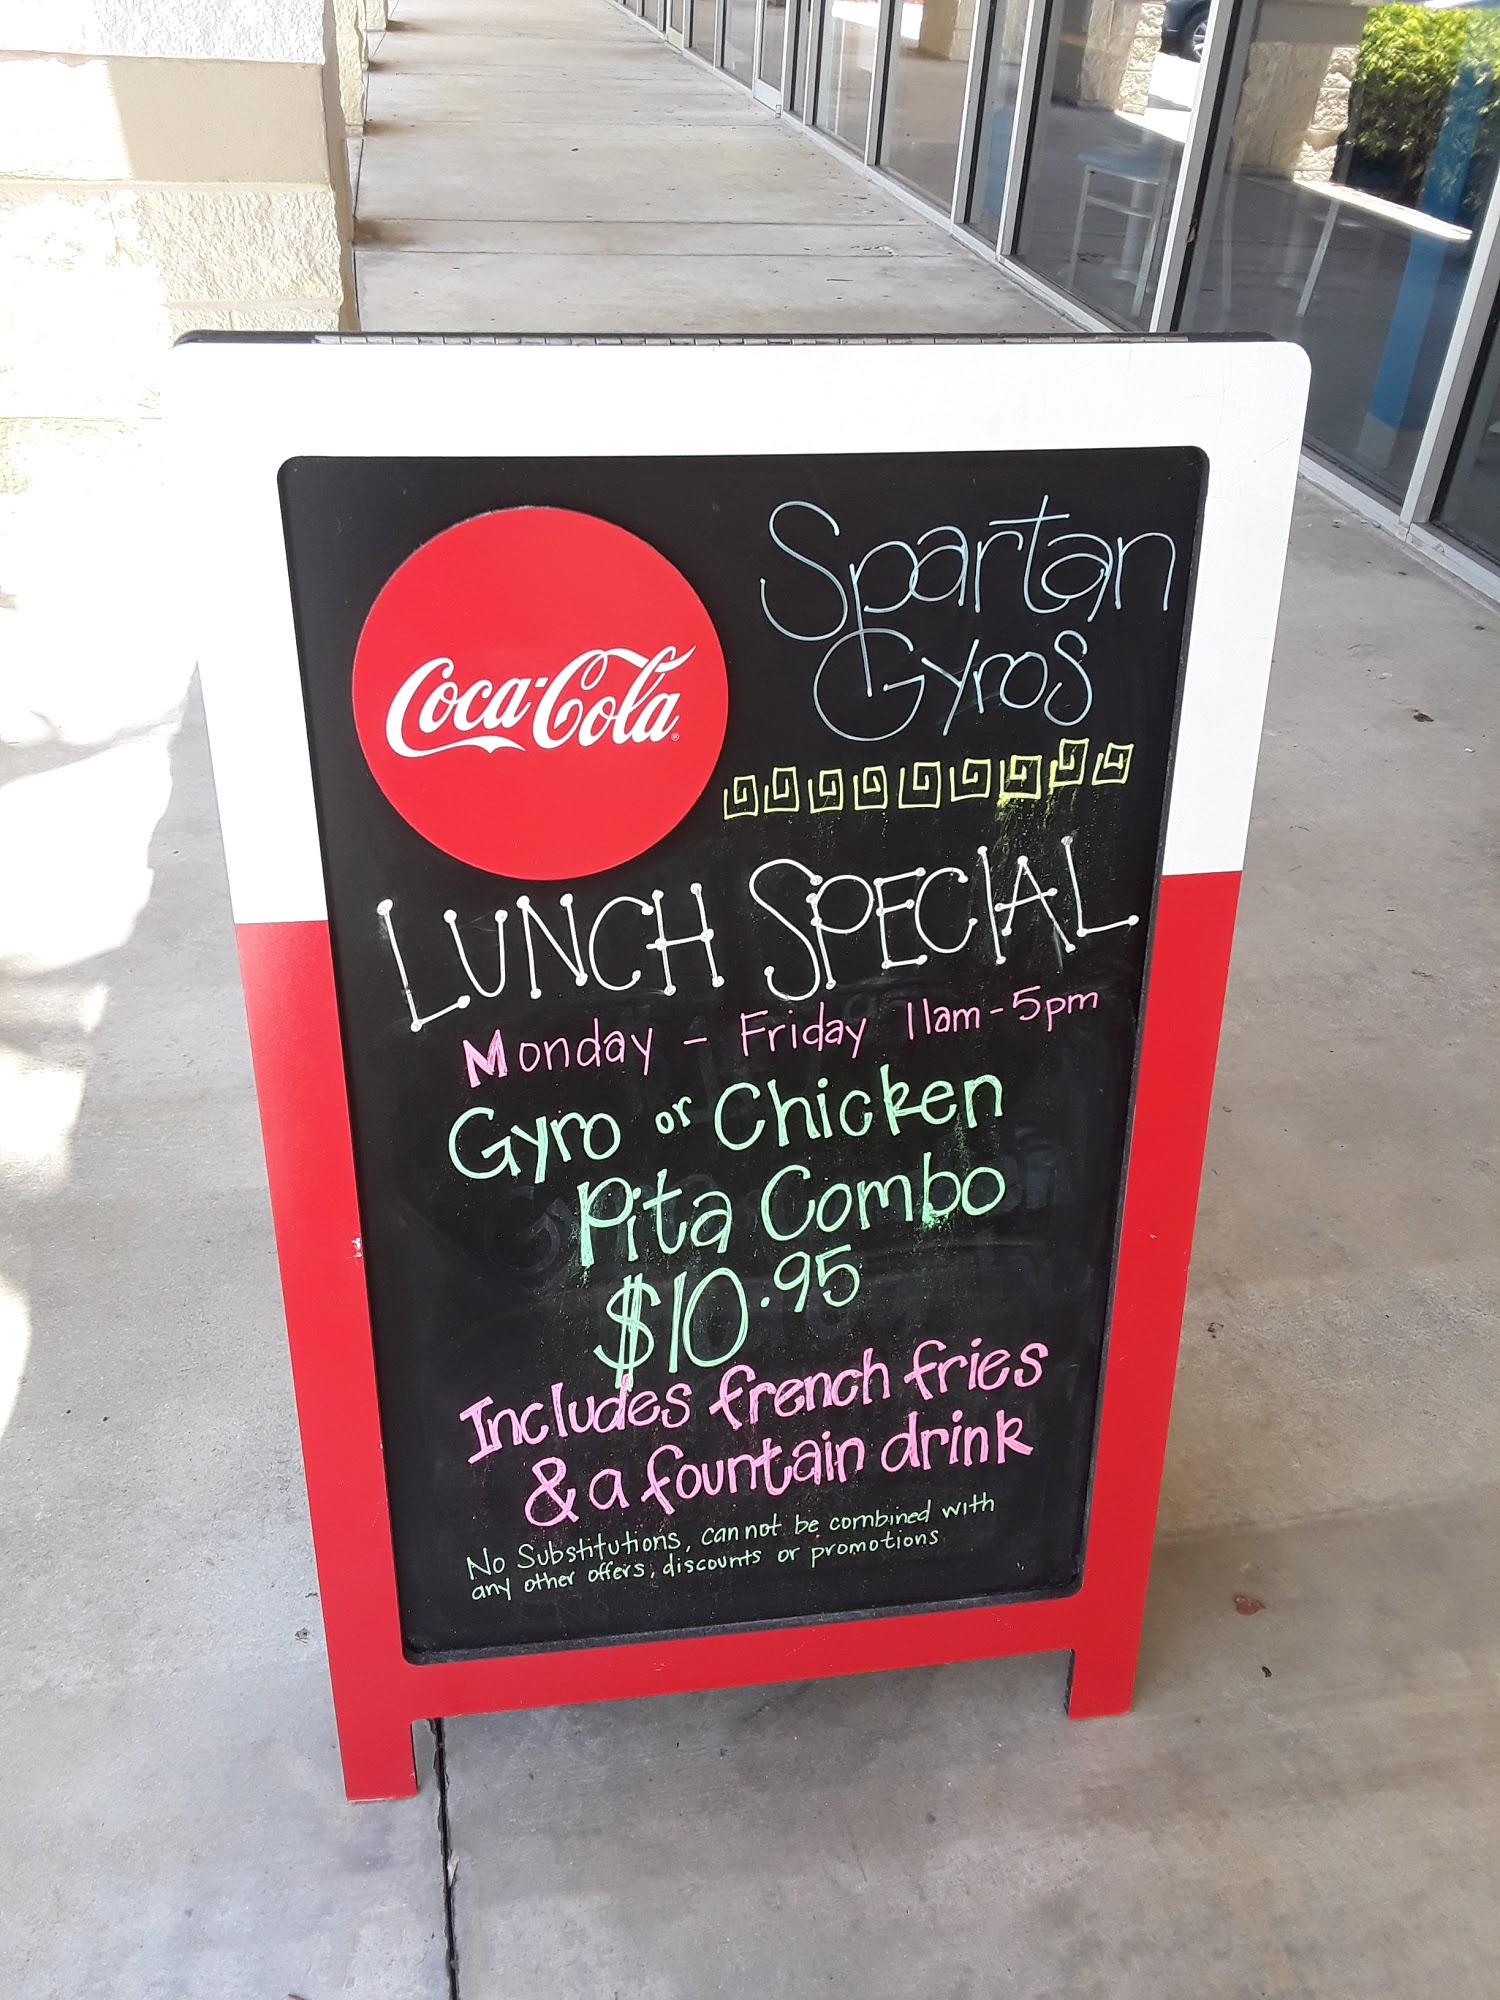 Coca-Cola
Spartan
Gyros
LUNCH SPECIAL
Monday - Friday 11am-5pm
Gyro or Chicken
Pita Combo
$10.95
Includes french fries
& a fountain drink
No Substitutions, cannot be combined with
any other offers, discounts or promotions